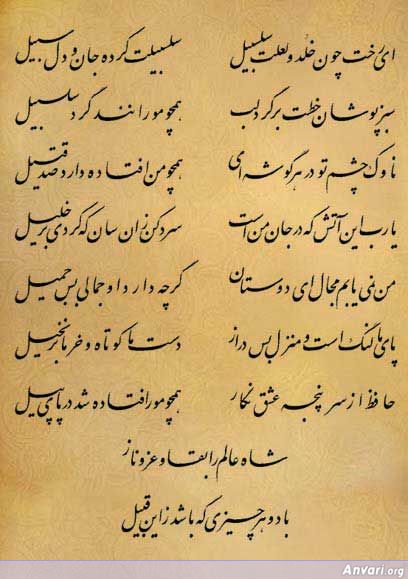 ای رخت چون خلد و لعلت سلسبیل سلسبیلت کرده جان و دل سبیل
سبزپوشان خطت بر گرد لب همچو مورانند گرد سلسبیل
ناوک چشم تو در هر گوشه‌ای همچو من افتاده دارد صد قتیل
یا رب این آتش که در جان من است سرد کن زان سان که کردی بر خلیل
من نمی‌یابم مجال ای دوستان گرچه دارد او جمالی بس جمیل
پای ما لنگ است و منزل بس دراز دست ما کوتاه و خرما بر نخیل
حافظ از سرپنجه عشق نگار همچو مور افتاده شد در پای پیل
شاه عالم را بقا و عز و ناز
باد و هر چیزی که باشد زاین قبیل
Anvari.org